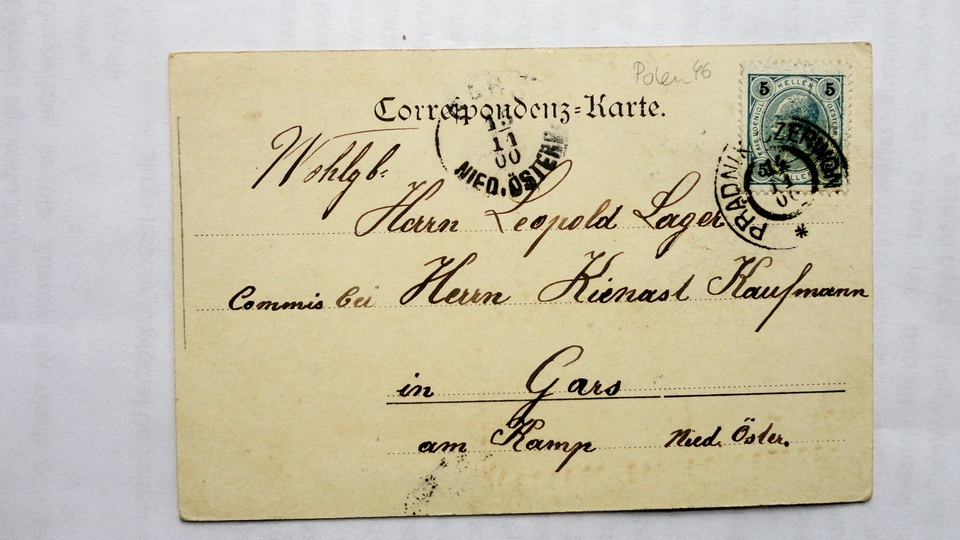 Polen 46
Correspondenz-Karte.
5 HELLER 5
13
11
00
NIED. ÖSTERR
PRĄDNIK CZERWON
11
00
Wohlgb.
Herrn Leopold Lager
Commis bei Herrn Kienast Kaufmann
in Gars
am Kamp Nied. Öster.